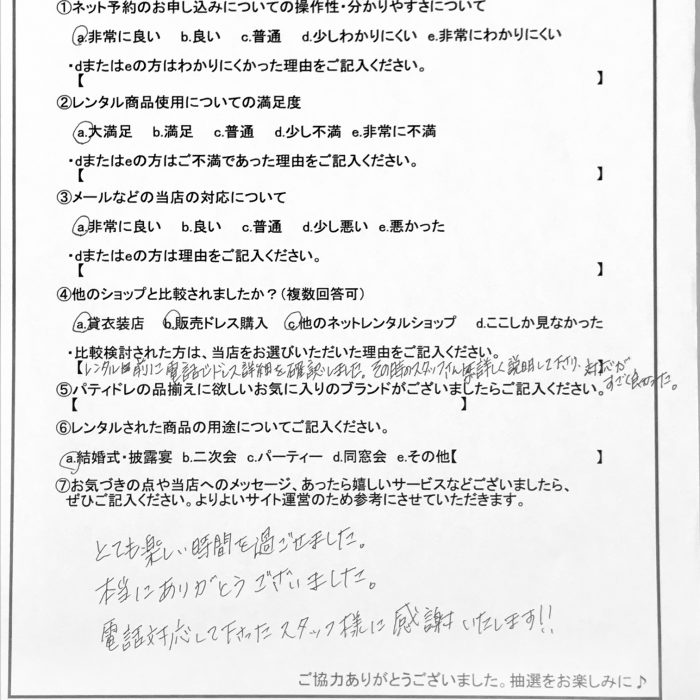 ①ネット予約のお申し込みについての操作性・分かりやすさについて
a.非常に良い b.良い c.普通 d.少しわかりにくい e.非常にわかりにくい
・dまたはeの方はわかりにくかった理由をご記入ください。
【 】
②レンタル商品使用についての満足度
a.大満足 b.満足 c.普通 d.少し不満 e.非常に不満
・dまたはeの方はご不満であった理由をご記入ください。
【 】
③メールなどの当店の対応について
a.非常に良い b.良い c.普通 d.少し悪い e.悪かった
・dまたはeの方は理由をご記入ください。
【 】
④他のショップと比較されましたか？(複数回答可)
a.貸衣装店 b.販売ドレス購入 c.他のネットレンタルショップ d.ここしか見なかった
・比較検討された方は、当店をお選びいただいた理由をご記入ください。
【レンタル前に電話でドレス詳細を確認しました。その時のスタッフさんが詳しく説明して下さり、対応が
すごく良かった。
⑤パティドレの品揃えに欲しいお気に入りのブランドがございましたらご記入ください。
【 】
⑥レンタルされた商品の用途についてご記入ください。
a.結婚式・披露宴 b.二次会 c.パーティー d.同窓会 e.その他【 】
⑦お気づきの点や当店へのメッセージ、あったら嬉しいサービスなどございましたら、
ぜひご記入ください。よりよいサイト運営のため参考にさせていただきます。
とても楽しい時間を過ごせました。
本当にありがとうございました。
電話対応して下さったスタッフ様に感謝いたします!!
ご協力ありがとうございました。抽選をお楽しみに♪